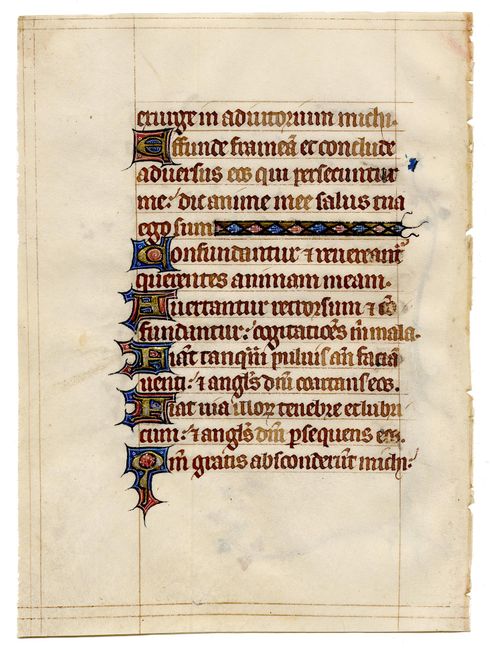 exurge in adiutorium michi.
Effunde frameã et conclude
adversus eos qui persecuntur
me: dic anime mee salus tua
ego sum
Confundantur ⁊ revereant᷑
querentes animam meam.
Avertantur retrorsum ⁊ cõ
fundantur: cogitãtes m̃ mala.
Fiãt tanq̃m puluis añ faciẽ
uenti: ⁊ angl̃s dñi coartans eos.
Fiat uia illoꝝ tenebre et lubri
cum: ⁊ angl̃s dñi ꝑsequens eos.
Qm̃ gratis absconderũt michi: